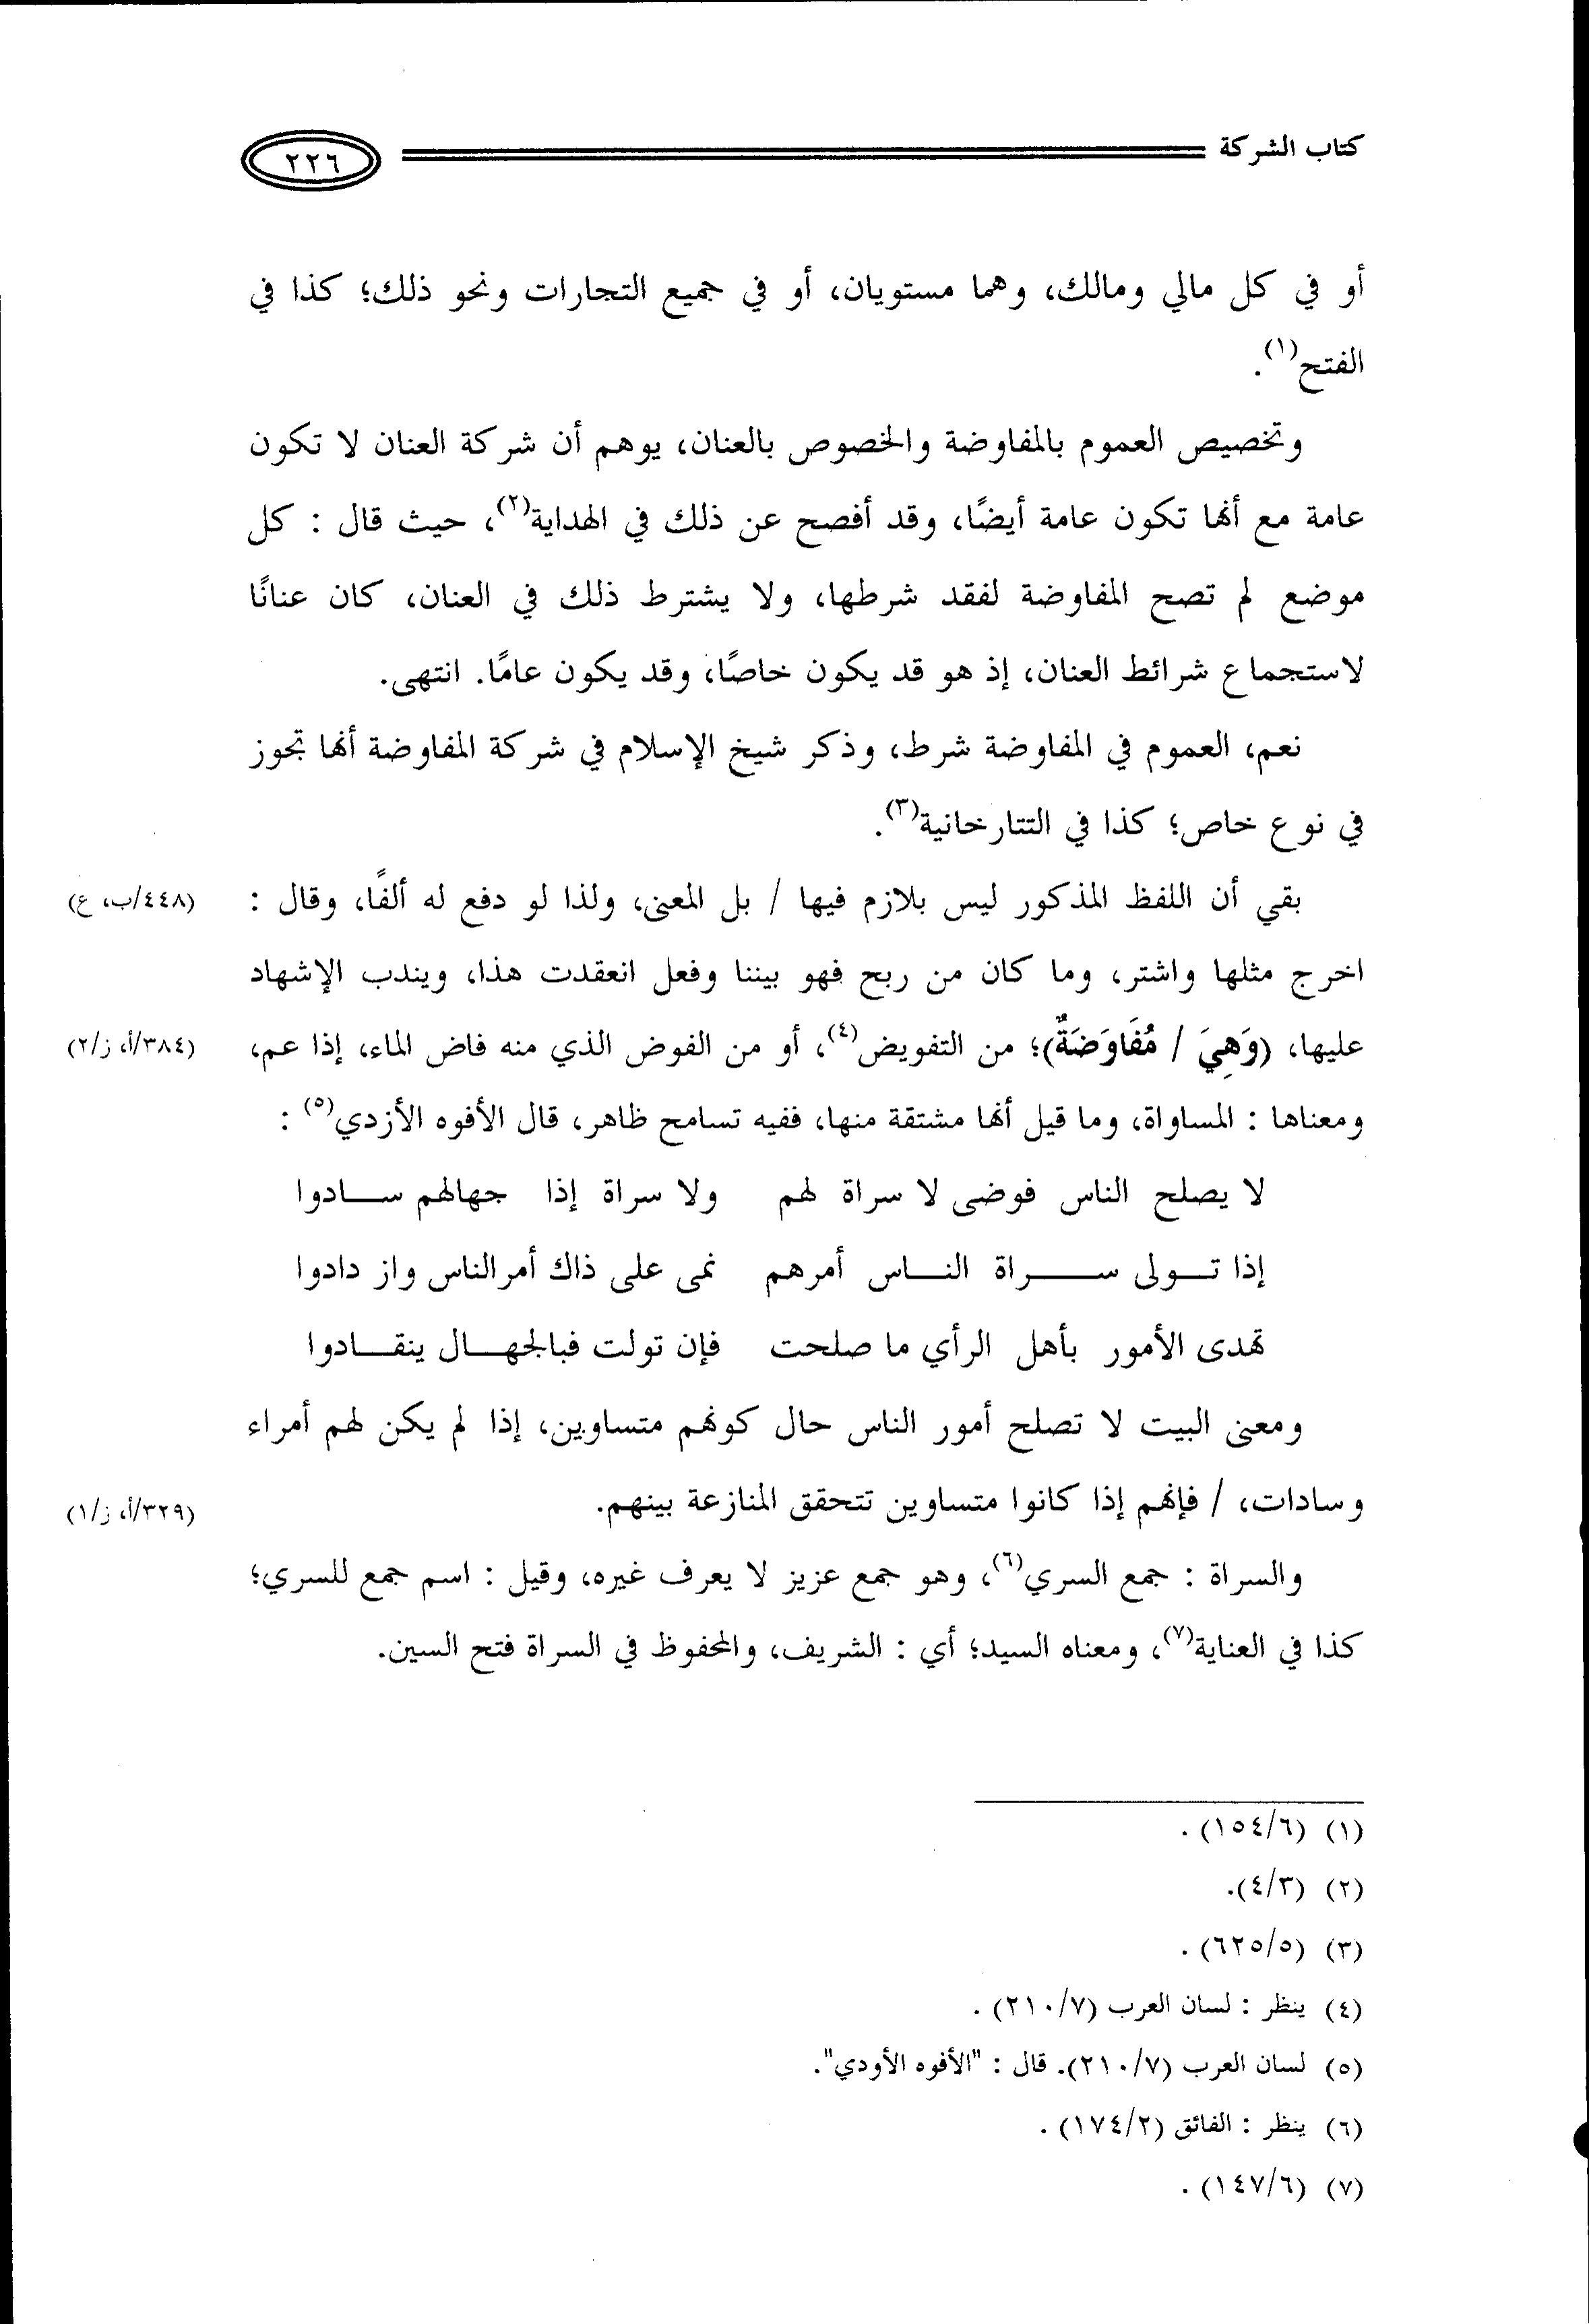 كتاب الشركة ٢٢٦
أو في كل مالي ومالك، وهما مستويان، أو في جميع التجارات ونحو ذلك؛ كذا في
الفتح(١).
وتخصيص العموم بالمفاوضة والخصوص بالعنان، يوهم أن شركة العنان لا تكون
عامة مع أنها تكون عامة أيضًا، وقد أفصح عن ذلك في الهداية(٢)، حيث قال : كل
موضع لم تصح المفاوضة لفقد شرطها، ولا يشترط ذلك في العنان، كان عنانًا
لاستجماع شرائط العنان، إذ هو قد يكون خاصًا، وقد يكون عامًا. انتهى.
نعم، العموم في المفاوضة شرط، وذكر شيخ الإسلام في شركة المفاوضة أنها تجوز
في نوع خاص؛ كذا في التتارخانية(٣).
بقي أن اللفظ المذكور ليس بلازم فيها / بل المعنى، ولذا لو دفع له ألفًا، وقال : (٤٤٨/ب، ع)
اخرج مثلها واشتر، وما كان من ربح فهو بيننا وفعل انعقدت هذا، ويندب الإشهاد
عليها، (وَهِيَ / مُفَاوَضَةٌ)؛ من التفويض(٤)، أو من الفوض الذي منه فاض الماء، إذا عم، (٣٨٤/أ، ز/٢)
ومعناها : المساواة، وما قيل أنها مشتقة منها، ففيه تسامح ظاهر، قال الأفوه الأزدي(٥) :
لا يصلح الناس فوضى لا سراة لهم ولا سراة إذا جهالهم ســادوا
إذا تــولى ســــراة النــاس أمرهم نمى على ذاك أمرالناس واز دادوا
تهدى الأمور بأهل الرأي ما صلحت فإن تولت فبالجهــال ينقــادوا
ومعنى البيت لا تصلح أمور الناس حال كونهم متساوين، إذا لم يكن لهم أمراء
وسادات، / فإنهم إذا كانوا متساوين تتحقق المنازعة بينهم. (٣٢٩/أ، ز/١)
والسراة : جمع السري(٦)، وهو جمع عزيز لا يعرف غيره، وقيل : اسم جمع للسري؛
كذا في العناية(٧)، ومعناه السيد؛ أي : الشريف، والمحفوظ في السراة فتح السين.
(١) (١٥٤/٦) .
(٢) (٤/٣).
(٣) (٦٢٥/٥) .
(٤) ينظر : لسان العرب (٢١٠/٧) .
(٥) لسان العرب (٢١٠/٧). قال : "الأفوه الأودي".
(٦) ينظر : الفائق (١٧٤/٢) .
(٧) (١٤٧/٦) .